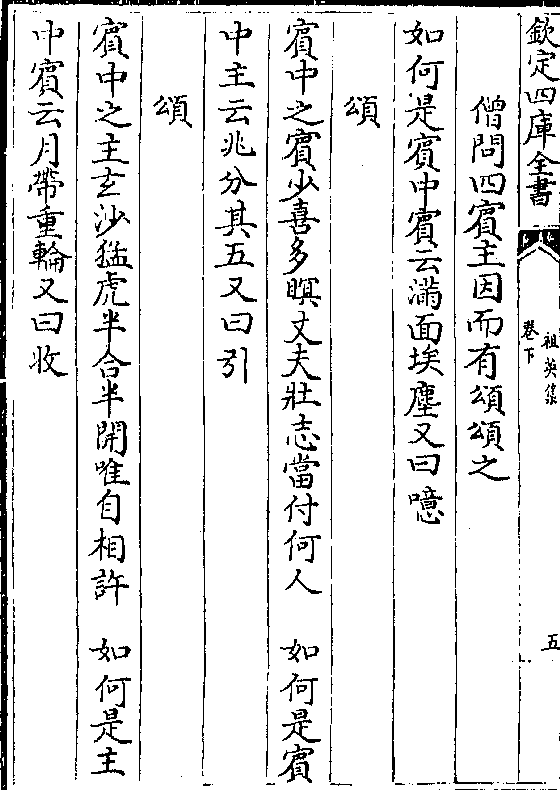 欽定四庫全書
祖英集
卷下
五
僧問四賓主因而有頌頌之
如何是賓中賓云滿面埃塵又曰噫
頌
賓中之賓少喜多瞋丈夫壯志當付何人　如何是賓
中主云兆分其五又曰引
頌
賓中之主玄沙猛虎半合半開唯自相許　如何是主
中賓云月帶重輪又曰收